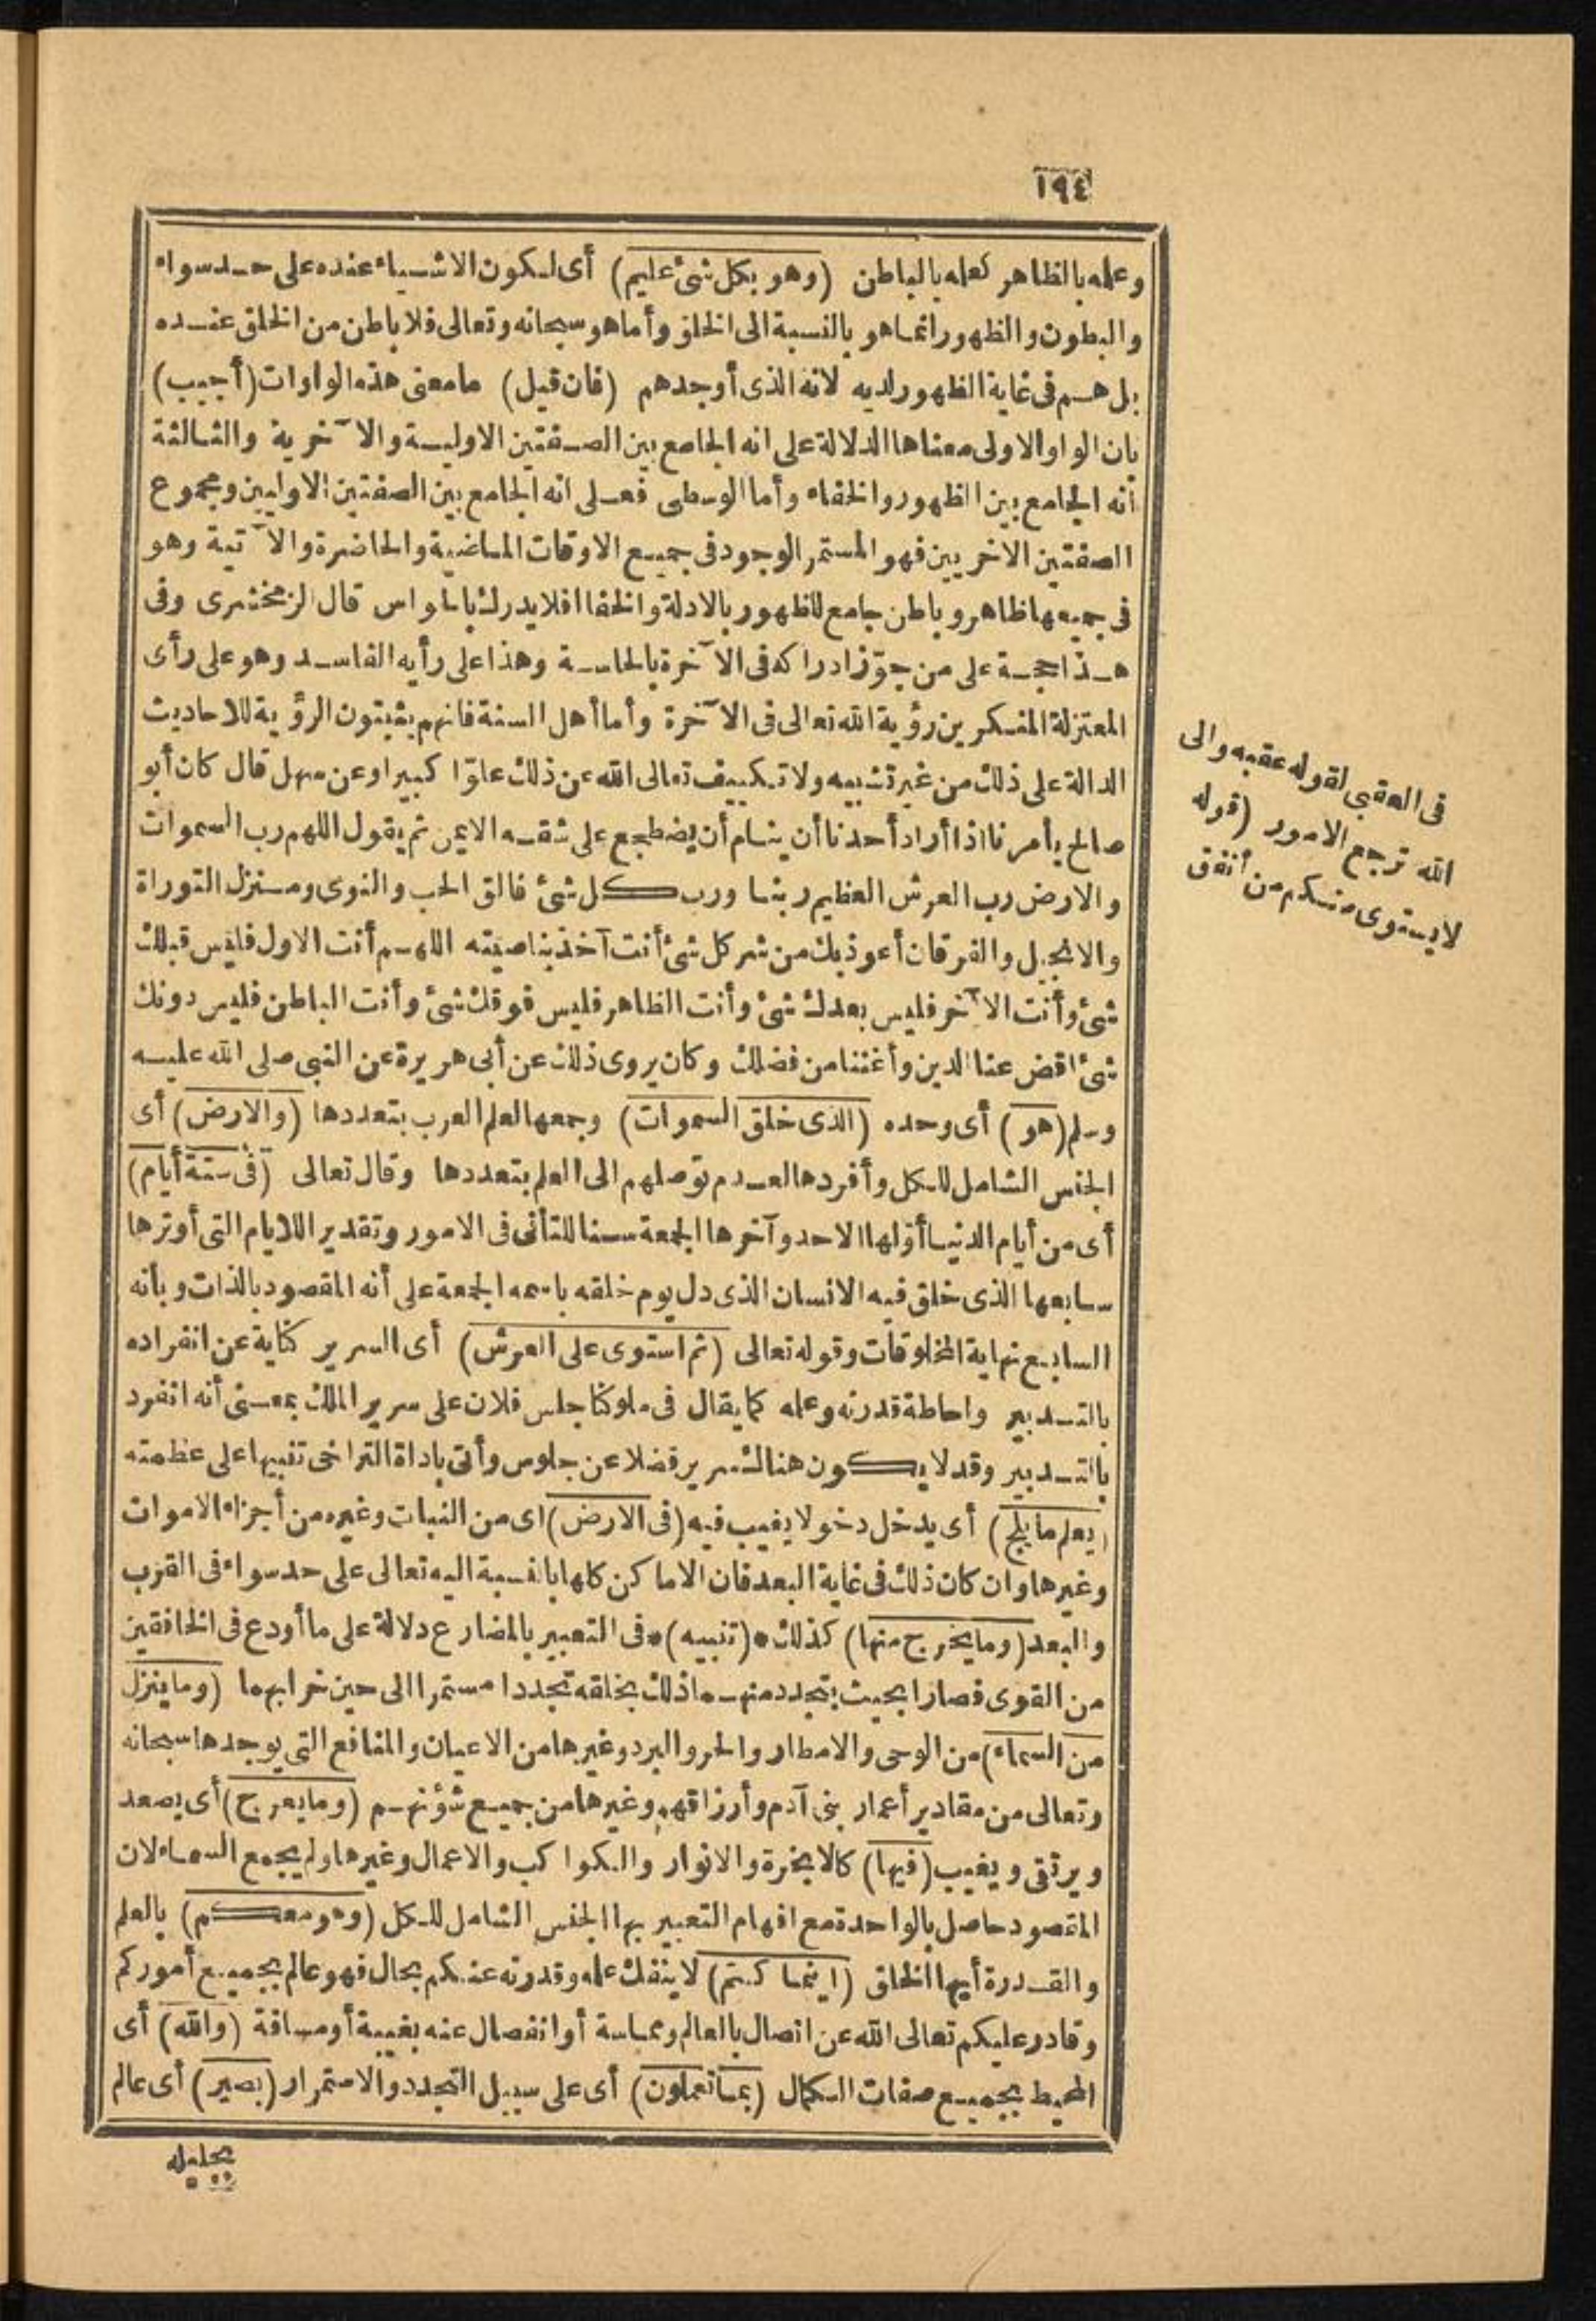 ١٩٤
وعلمه بالظاهر كعلمه بالباطن (وهو بكل شئ عليم) أى لكون الاشياء عنده على حد سواء
والبطون والظهور انما هو بالنسبة الى الخلق وأما هو سبحانه وتعالى فلا باطن من الخلق عنده
بل هم فى غاية الظهور لديه لانه الذى أوجدهم (فان قيل) ما معنى هذه الواوات (أجيب)
بان الواو الاولى معناها الدلالة على انه الجامع بين الصفتين الاولية والآخرية والثالثة
أنه الجامع بين الظهور والخفاء وأما الوسطى فعلى انه الجامع بين الصفتين الاوليين ومجموع
الصفتين الاخريين فهو المستمر الوجود فى جميع الاوقات الماضية والحاضرة والآتية وهو
فى جميعها ظاهر وباطن جامع للظهور بالادلة والخفاء فلا يدرك بالحواس قال الزمخشرى وفى
هذا حجة على من جوّز ادراكه فى الآخرة بالحاسة وهذا على رأيه الفاسد وهو على رأى
المعتزلة المنكرين رؤية الله تعالى فى الآخرة وأما أهل السنة فانهم يثبتون الرؤية للاحاديث
الدالة على ذلك من غير تشبيه ولا تكييف تعالى الله عن ذلك علوّا كبيرا وعن سهل قال كان أبو
صالح يأمرنا اذا أراد أحدنا أن ينام أن يضطجع على شقه الايمن ثم يقول اللهم رب السموات
والارض رب العرش العظيم ربنا ورب كل شئ فالق الحب والنوى ومنزل التوراة
والانجيل والفرقان أعوذ بك من شر كل شئ أنت آخذ بناصيته اللهم أنت الاول فليس قبلك
شئ وأنت الآخر فليس بعدك شئ وأنت الظاهر فليس فوقك شئ وأنت الباطن فليس دونك
شئ اقض عنا الدين وأغننا من فضلك وكان يروى ذلك عن أبى هريرة عن النبى صلى الله عليه
وسلم (هو) أى وحده (الذى خلق السموات) وجمعها لعلم العرب بتعددها (والارض) أى
الجنس الشامل للكل وأفردها لعدم توصلهم الى العلم بتعددها وقال تعالى (فى ستة أيام)
أى من أيام الدنيا أوّلها الاحد وآخرها الجمعة سنا للتأنى فى الامور وتقدير اللايام التى أوترها
سابعها الذى خلق فيه الانسان الذى دل يوم خلقه باسمه الجمعة على أنه المقصود بالذات وبأنه
السابع نهاية المخلوقات وقوله تعالى (ثم استوى على العرش) أى السرير كناية عن انفراده
بالتدبير واحاطة قدرته وعلمه كما يقال فى ملوكنا جلس فلان على سرير الملك بمعنى أنه انفرد
بالتدبير وقد لا يكون هناك سرير فضلا عن جلوس وأتى باداة التراخى تنبيها على عظمته
(يعلم ما يلج) أى يدخل دخولا يغيب فيه (فى الارض) اى من النبات وغيره من أجزاء الاموات
وغيرها وان كان ذلك فى غاية البعد فان الاماكن كلها بالنسبة اليه تعالى على حد سواء فى القرب
والبعد (وما يخرج منها) كذلك * (تنبيه) * فى التعبير بالمضارع دلالة على ما أودع فى الخافقين
من القوى فصارا بحيث يتجدد منهما ذلك بخلقه تجددا مستمرا الى حين خرابهما (وما ينزل
من السماء) من الوحى والامطار والحر والبرد وغيرها من الاعيان والمنافع التى يوجدها سبحانه
وتعالى من مقادير أعمار بنى آدم وأرزاقهم وغيرها من جميع شؤنهم (وما يعرج) أى يصعد
ويرتقى ويغيب (فيها) كالابخرة والانوار والكواكب والاعمال وغيرها ولم يجمع السماء لان
المقصود حاصل بالواحدة مع افهام التعبير بها الجنس الشامل للكل (وهو معكم) بالعلم
والقدرة أيها الخلق (اينما كنتم) لا ينفك علمه وقدرته عنكم بحال فهو عالم بجميع أموركم
وقادر عليكم تعالى الله عن اتصال بالعالم ومماسة أو انفصال عنه بغيبة أو مسافة (والله) أى
المحيط بجميع صفات الكمال (بما تعملون) أى على سبيل التجدد والاستمرار (بصير) أى عالم
بجليله
فى العقبى لقوله عقبه والى
الله ترجع الامور (قوله
لا يستوى منكم من أنفق